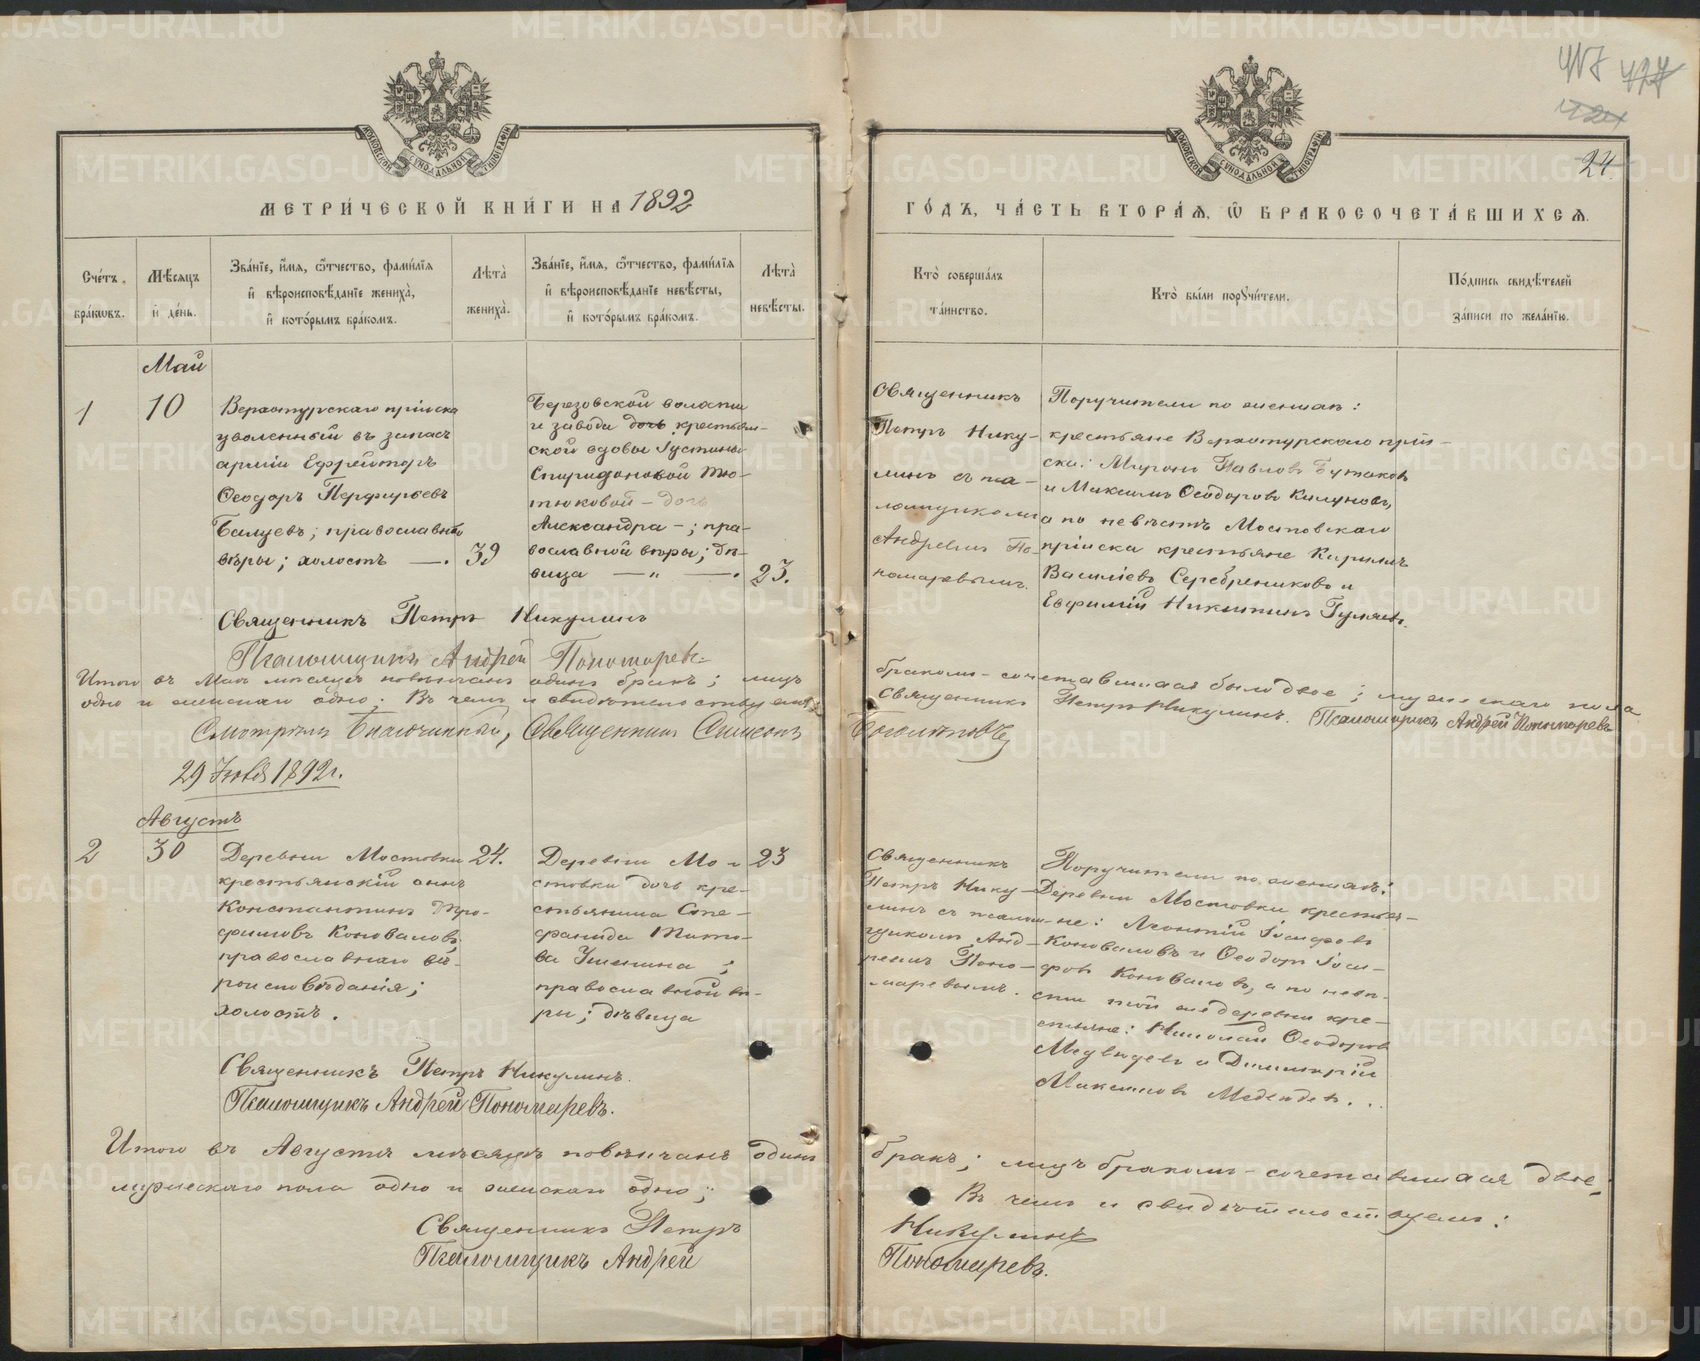 417 427
24
МЕТРИ́ЧЕСКОЙ КНИ́ГИ НА 1892
ГО́ДЪ, ЧА́СТЬ ВТОРА́Я, Ѡ҆ БРАКОСОЧЕТА́ВШИХСЯ.
Сче́тъ бра́кѡвъ.
Мѣ́сяцъ и҆ де́нь.
Зва́нїе, и҆́мя, ѻ҆́тчество, фами́лїя и҆ вѣроисповѣ́данїе жениха̀, и҆ кото́рымъ бра́комъ.
Лѣ́та̀ жениха̀.
Зва́нїе, и҆́мя, ѻ҆́тчество, фами́лїя и҆ вѣроисповѣ́данїе невѣ́сты, и҆ кото́рымъ бра́комъ.
Лѣ́та̀ невѣ́сты.
Кто̀ соверша́лъ та́инство.
Кто̀ бы́ли порꙋчи́тели.
По́дпись свидѣ́телей за́писи по жела́нїю.
Май
1
10
Верхотурскаго пріиска
уволенный въ запасъ
арміи Ефрейторъ
Ѳеодоръ Перфирьевъ
Балуевъ; православной
вѣры; холостъ —.
39
Березовской волости
и завода дочь крестьян-
ской вдовы Іустины
Спиридоновой Тю-
тюковой – дочь
Александра –; пра-
вославной вѣры; дѣ-
вица — „ —.
23.
Священникъ
Петръ Нику-
линъ съ пса-
ломщикомъ
Андреемъ По-
номаревымъ.
Поручители по женихѣ:
крестьяне Верхотурскаго прі-
иска: Миронъ Павловъ Бутаковъ
и Максимъ Ѳеодоровъ
а по невѣстѣ Мостовскаго
пріиска крестьяне Кириллъ
Василіевъ Серебрениковъ и
Евфимій Никитинъ Гуляевъ.
Священникъ Петръ Никулинъ
Псаломщикъ Андрей Пономаревъ
Итого въ Маѣ мѣсяцѣ повѣнчанъ одинъ бракъ; лицъ бракомъ-сочетавшихся было двое; мужескаго пола
одно и женскаго одно. Въ чемъ и свидѣтельствуемъ: Священникъ Петръ Никулинъ. Псаломщикъ Андрей Пономаревъ
Смотрѣлъ Благочинный, Священникъ Симеонъ
29 Іюля 1892 г.
Августъ
2
30
Деревни Мостовки
крестьянскій сынъ
Константинъ Тро-
фимовъ Коноваловъ,
православнаго вѣ-
роисповѣданія;
холостъ.
24.
Деревни Мо-
стовки дочь кре-
стьянина Сте-
фанида Тито-
ва Ушенина;
православной вѣ-
ры; дѣвица
23
Священникъ
Петръ Нику-
линъ съ псалом-
щикомъ Анд-
реемъ Поно-
маревымъ.
Поручители по женихѣ:
Деревни Мостовки крестья-
не: Леонтій Іосифовъ
Коноваловъ и Ѳеодоръ Іоси-
фовъ Коноваловъ, а по невѣ-
стѣ той же деревни кре-
стьяне: Николай Ѳеодоровъ
Медвѣдевъ и Димитрій
Максимовъ Медвѣдевъ...
Священникъ Петръ Никулинъ.
Псаломщикъ Андрей Пономаревъ.
Итого въ Августѣ мѣсяцѣ повѣнчанъ одинъ бракъ; лицъ бракомъ-сочетавшихся двое;
мужескаго пола одно и женскаго одно; Въ чемъ и свидѣтельствуемъ:
Священникъ Петръ Никулинъ
Псаломщикъ Андрей Пономаревъ.
METRIKI.GASO-URAL.RU